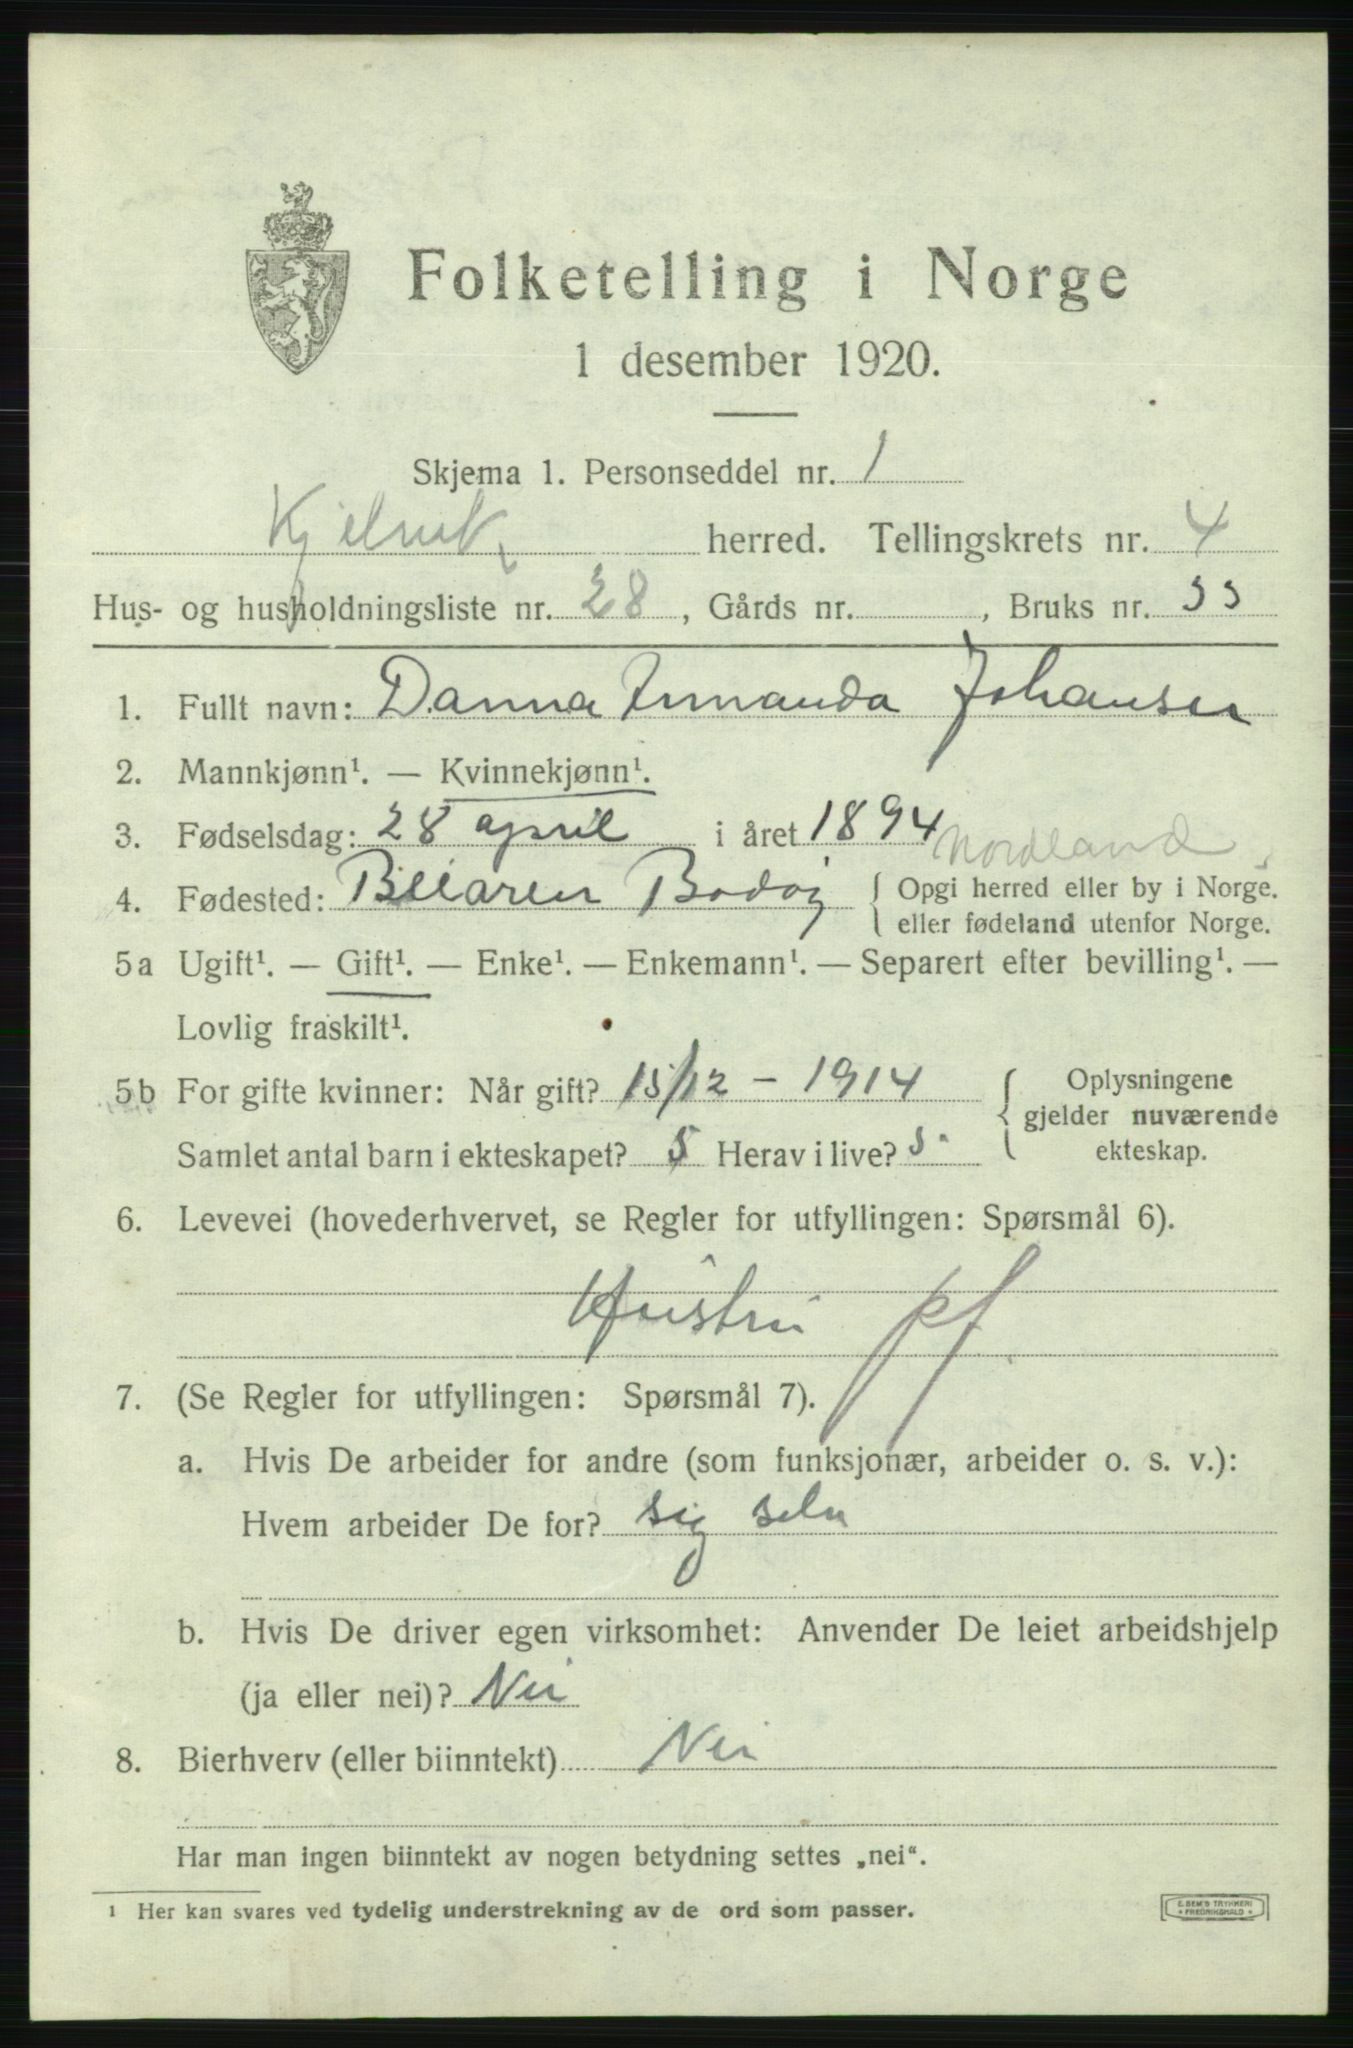 Folketelling i Norge
1 desember 1920.
Skjema 1. Personseddel nr. 1
Kjelvik herred. Tellingskrets nr. 4
Hus- og husholdningsliste nr. 28, Gårds nr. , Bruks nr. 33
1. Fullt navn: Danna Johansen
2. Mannkjønn¹. — Kvinnekjønn¹.
3. Fødselsdag: 28 april i året 1894
Nordland
4. Fødested: Beiaren Bodøj { Opgi herred eller by i Norge.
eller fødeland utenfor Norge.
5a Ugift¹. — Gift¹. — Enke¹. — Enkemann¹. — Separert efter bevilling¹. —
Lovlig fraskilt¹.
5b For gifte kvinner: Når gift? 15/12 – 1914 { Oplysningene
gjelder nuværende
Samlet antal barn i ekteskapet? 5 Herav i live? 5 ekteskap.
6. Levevei (hovederhvervet, se Regler for utfyllingen: Spørsmål 6).
Hüstrü pf
7. (Se Regler for utfyllingen: Spørsmål 7).
a. Hvis De arbeider for andre (som funksjonær, arbeider o. s. v.):
Hvem arbeider De for? sig selv
b. Hvis De driver egen virksomhet: Anvender De leiet arbeidshjelp
(ja eller nei)? Nei
8. Bierhverv (eller biinntekt) Nei
Har man ingen biinntekt av nogen betydning settes „nei“.
¹ Her kan svares ved tydelig understrekning av de ord som passer.
E. SEM'S TRYKKERI
FREDRIKSHALD